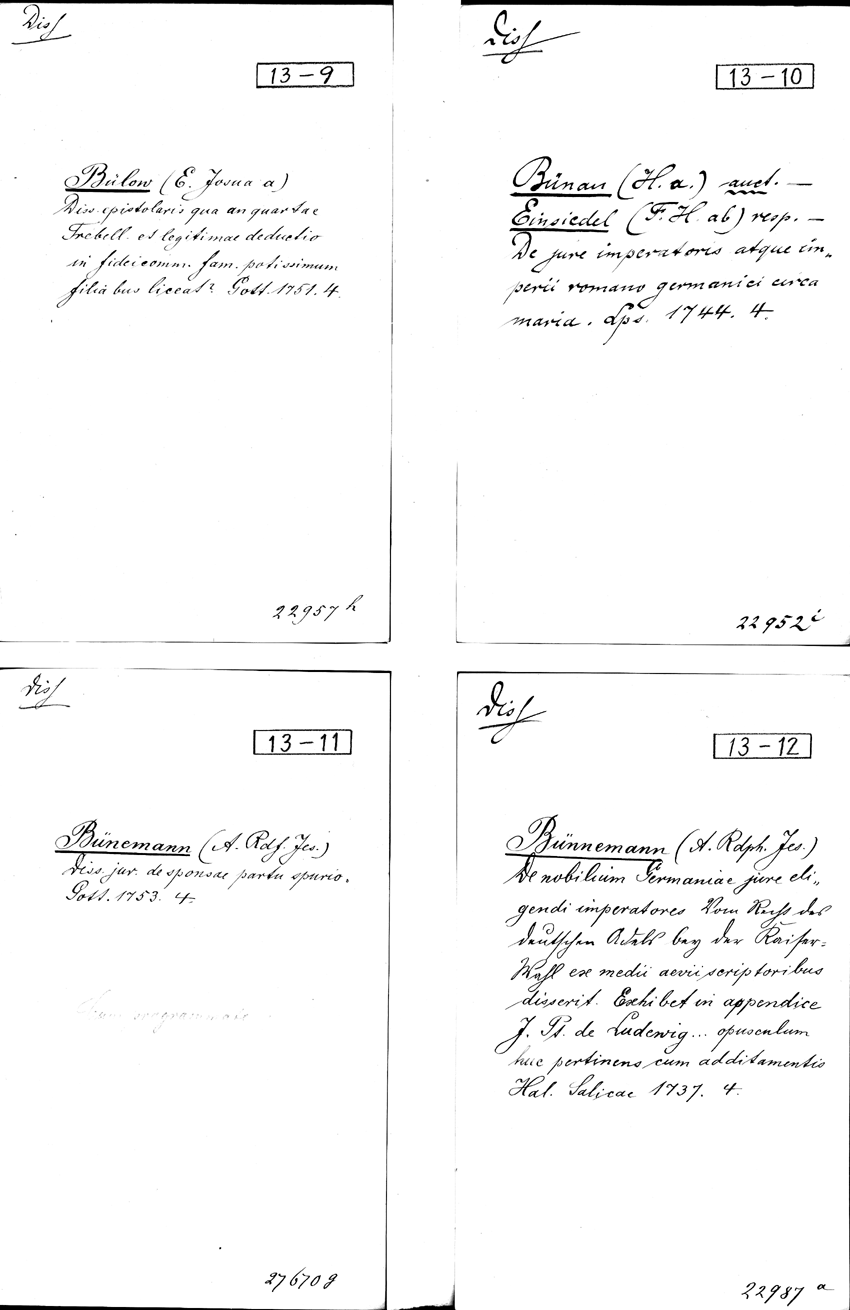 Diss
13-9
Bülow (E. Josua a)
Diss. epistolaris qua an quartae
Trebell. et legitimae deductio
in fideicomm. fam. potissimum
filiabus liceat? Gott. 1751. 4.
22957 h
Diss
13-10
Bünau (H. a.) auct. —
Einsiedel (F. H. ab) resp. —
De jure imperatoris atque im„
perii romano germanici circa
maria. Lps. 1744. 4.
22952 i
Diss
13-11
Bünemann (A. Rdf. Jes.)
Diss. jur. de sponsae partu spurio.
Gott. 1753. 4.
Cum programmate
27670 g
Diss
13-12
Bünnemann (A. Rdph. Jes.)
De nobilium Germaniae jure eli„
gendi imperatores Vom Recht des
deutschen Adels bey der Kaiser=
Wahl ex medii aevii scriptoribus
disserit. Exhibet in appendice
J. Pt. de Ludewig... opusculum
huc pertinens cum additamentis
Hal. Salicae 1737. 4.
22987 a